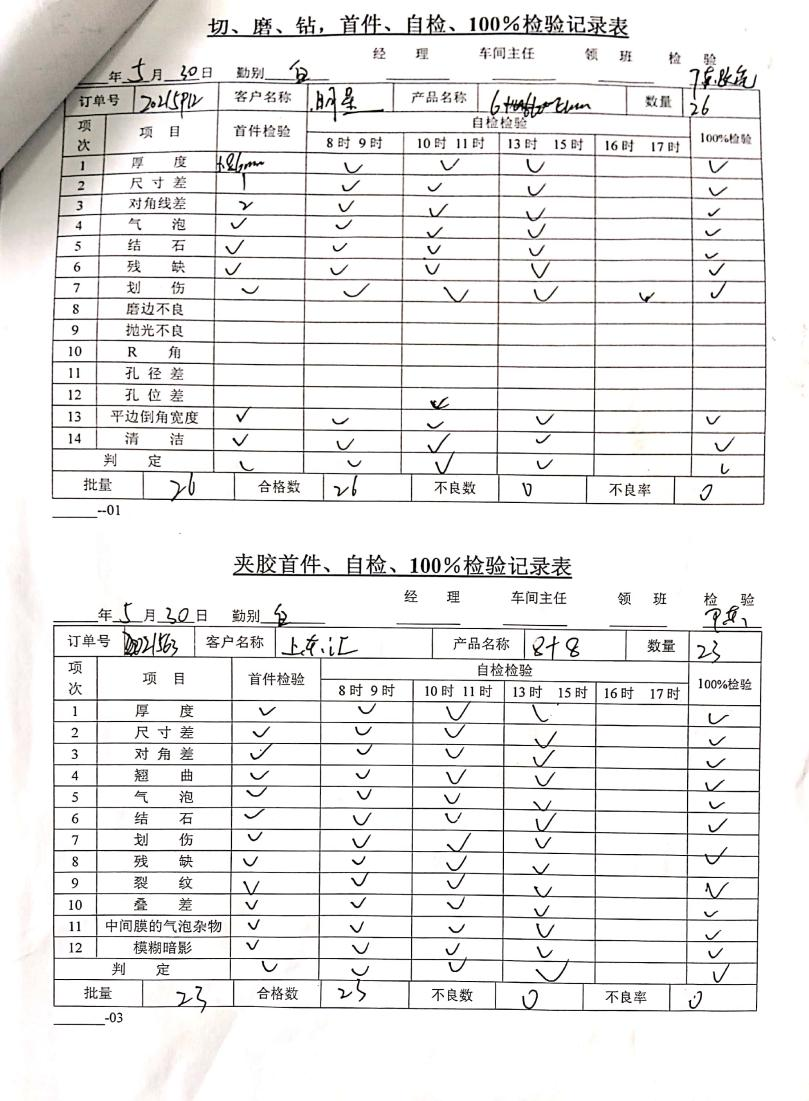 切、磨、钻，首件、自检、100%检验记录表
经 理 车间主任 领 班 检 验
年 5 月 30 日 勤别 白
订单号 客户名称 明星 产品名称 数量 26
项次 项 目 首件检验 自检检验 100%检验
8时 9时 10时 11时 13时 15时 16时 17时
1 厚 度 ✓ ✓ ✓ ✓
2 尺寸差 1 ✓ ✓ ✓ ✓
3 对角线差 2 ✓ ✓ ✓ ✓
4 气 泡 ✓ ✓ ✓ ✓ ✓
5 结 石 ✓ ✓ ✓ ✓ ✓
6 残 缺 ✓ ✓ ✓ ✓ ✓
7 划 伤 ✓ ✓ ✓ ✓ ✓ ✓
8 磨边不良
9 抛光不良
10 R 角
11 孔径差
12 孔位差 ✓
13 平边倒角宽度 ✓ ✓ ✓ ✓ ✓
14 清 洁 ✓ ✓ ✓ ✓ ✓
判 定 ✓ ✓ ✓ ✓ ✓
批量 26 合格数 26 不良数 0 不良率 0
--01
夹胶首件、自检、100%检验记录表
经 理 车间主任 领 班 检 验
年 5 月 30 日 勤别 白
订单号 客户名称 产品名称 8+8 数量 23
项次 项 目 首件检验 自检检验 100%检验
8时 9时 10时 11时 13时 15时 16时 17时
1 厚 度 ✓ ✓ ✓ ✓ ✓
2 尺寸差 ✓ ✓ ✓ ✓ ✓
3 对角差 ✓ ✓ ✓ ✓ ✓
4 翘 曲 ✓ ✓ ✓ ✓ ✓
5 气 泡 ✓ ✓ ✓ ✓ ✓
6 结 石 ✓ ✓ ✓ ✓ ✓
7 划 伤 ✓ ✓ ✓ ✓ ✓
8 残 缺 ✓ ✓ ✓ ✓
9 裂 纹 ✓ ✓ ✓ ✓ ✓
10 叠 差 ✓ ✓ ✓ ✓ ✓
11 中间膜的气泡杂物 ✓ ✓ ✓ ✓ ✓
12 模糊暗影 ✓ ✓ ✓ ✓ ✓
判 定 ✓ ✓ ✓ ✓ ✓
批量 23 合格数 23 不良数 0 不良率 0
-03